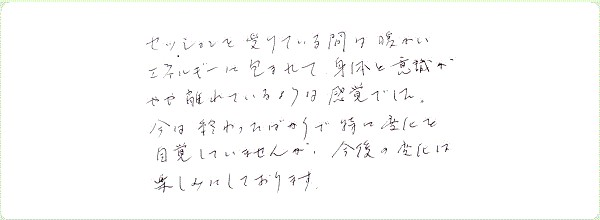 セッションを受けている間は暖かい
エネルギーに包まれて、身体と意識が
やや離れているような感覚でした。
今は終わったばかりで特に変化を
自覚していませんが、今後の変化は
楽しみにしております。